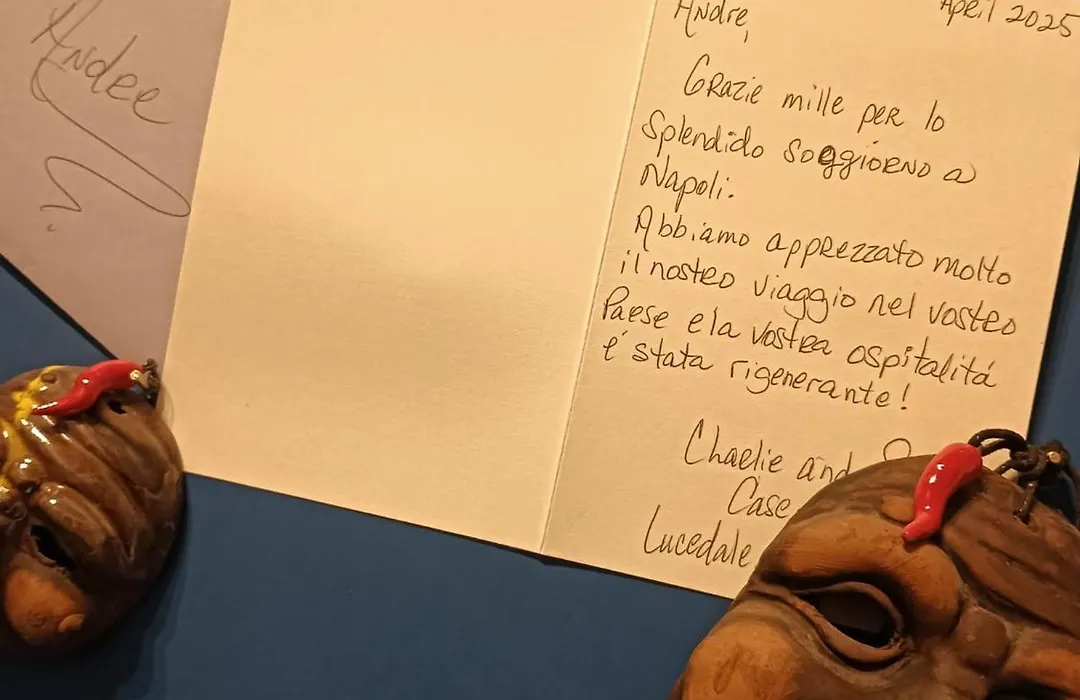 Andre
Andre,
April 2025
Grazie mille per lo
splendido soggiorno a
Napoli.
Abbiamo apprezzato molto
il nostro viaggio nel vostro
Paese e la vostra ospitalitá
é stata rigenerante!
Charlie and
Case
Lucedale